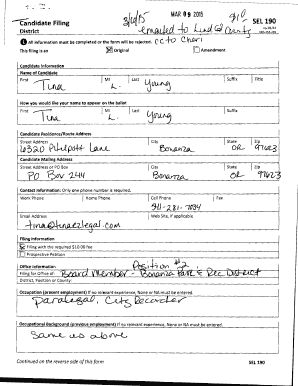 Candidate Filing
District
3/9/15
MAR 09 2015
emailed to Lind @ County
cc to Cheri
SEL 190
All information must be completed or the form will be rejected.
This filing is an
Original
Amendment
Candidate Information
Name of Candidate
First MI Last Suffix Title
Tina L. Young
How you would like your name to appear on the ballot
First MI Last Suffix
Tina L. Young
Candidate Residence/Route Address
Street Address City State Zip
6320 Philpott Lane Bonanza OR 97623
Candidate Mailing Address
Street Address or PO Box City State Zip
PO Box 244 Bonanza OR 97623
Contact Information: Only one phone number is required.
Work Phone Home Phone Cell Phone Fax
Email Address Web Site, if applicable
tina@tinaezlegal.com
Filing Information
Filing with the required $10.00 fee
Prospective Petition
Office Information
Position #2
Filing for Office of: Board Member - Bonanza Park & Rec District
District, Position or County:
Occupation (present employment) If no relevant experience, None or NA must be entered.
Paralegal, City Recorder
Occupational Background (previous employment) If no relevant experience, None or NA must be entered.
Same as above
Continued on the reverse side of this form SEL 190